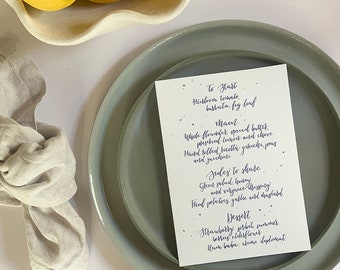 To Start
Heirloom tomato,
burrata, fig leaf
Main
Whole flounder, spiced butter,
preserved lemon and chive
Hand rolled ricotta gnocchi, peas
and zucchini
Sides to share
Green salad, honey
and verjuice dressing
Fried potatoes, garlic and mustard
Dessert
Strawberry sorbet, summer
berries, elderflower
Rum baba, crème diplomat